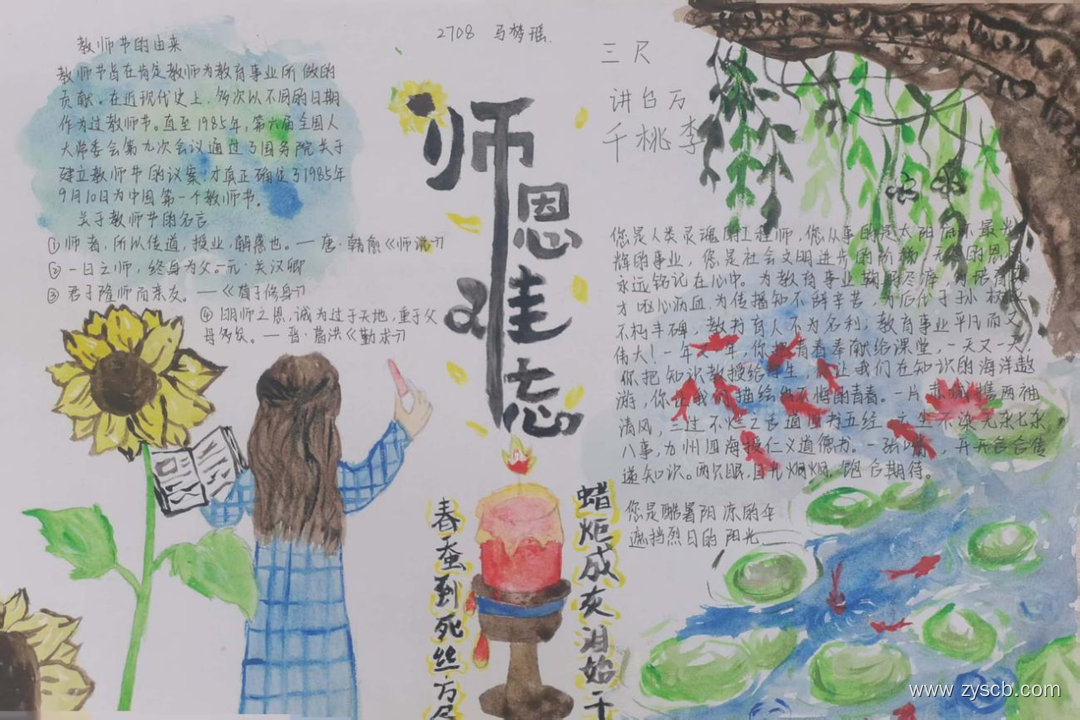 2708 马梦瑶
教师节的由来
教师节旨在肯定教师为教育事业所做的
贡献。在近现代史上,多次以不同的日期
作为过教师节。直至1985年,第六届全国人
大常委会第九次会议通过了国务院关于
建立教师节的议案,才真正确定了1985年
9月10日为中国第一个教师节。
关于教师节的名言
①师者,所以传道,授业,解惑也。—唐·韩愈《师说》
②一日之师,终身为父。元·关汉卿
③君子隆师而亲友。—《荀子修身》
④明师之恩,诚为过于天地,重于父
母多矣。—晋·葛洪《勤求》
师恩难忘
三尺
讲台万
千桃李
您是人类灵魂的工程师,您从事的是太阳底下最光
辉的事业,您是社会文明进步的阶梯
永远铭记在心中。为教育事业鞠躬尽瘁,为培育
才呕心沥血,为传播知不辞辛苦,为后代子孙
不朽丰碑,教书育人不为名利;教育事业平凡而又
伟大!一年又一年,你把青春奉献给课堂,一天又一天,
你把知识教授给学生,你让我们在知识的海洋遨
游,你让我们描绘着无悔的青春。一片赤诚,携两袖
清风,三寸不烂之舌通四书五经
八事,九州四海授仁义道德书。一张嘴,开开合合传
递知识。两只眼,目光炯炯,饱含期待。
您是酷暑阴凉的伞
遮挡烈日的阳光
春蚕到死丝方尽
蜡炬成灰泪始干
www.zyscb.com